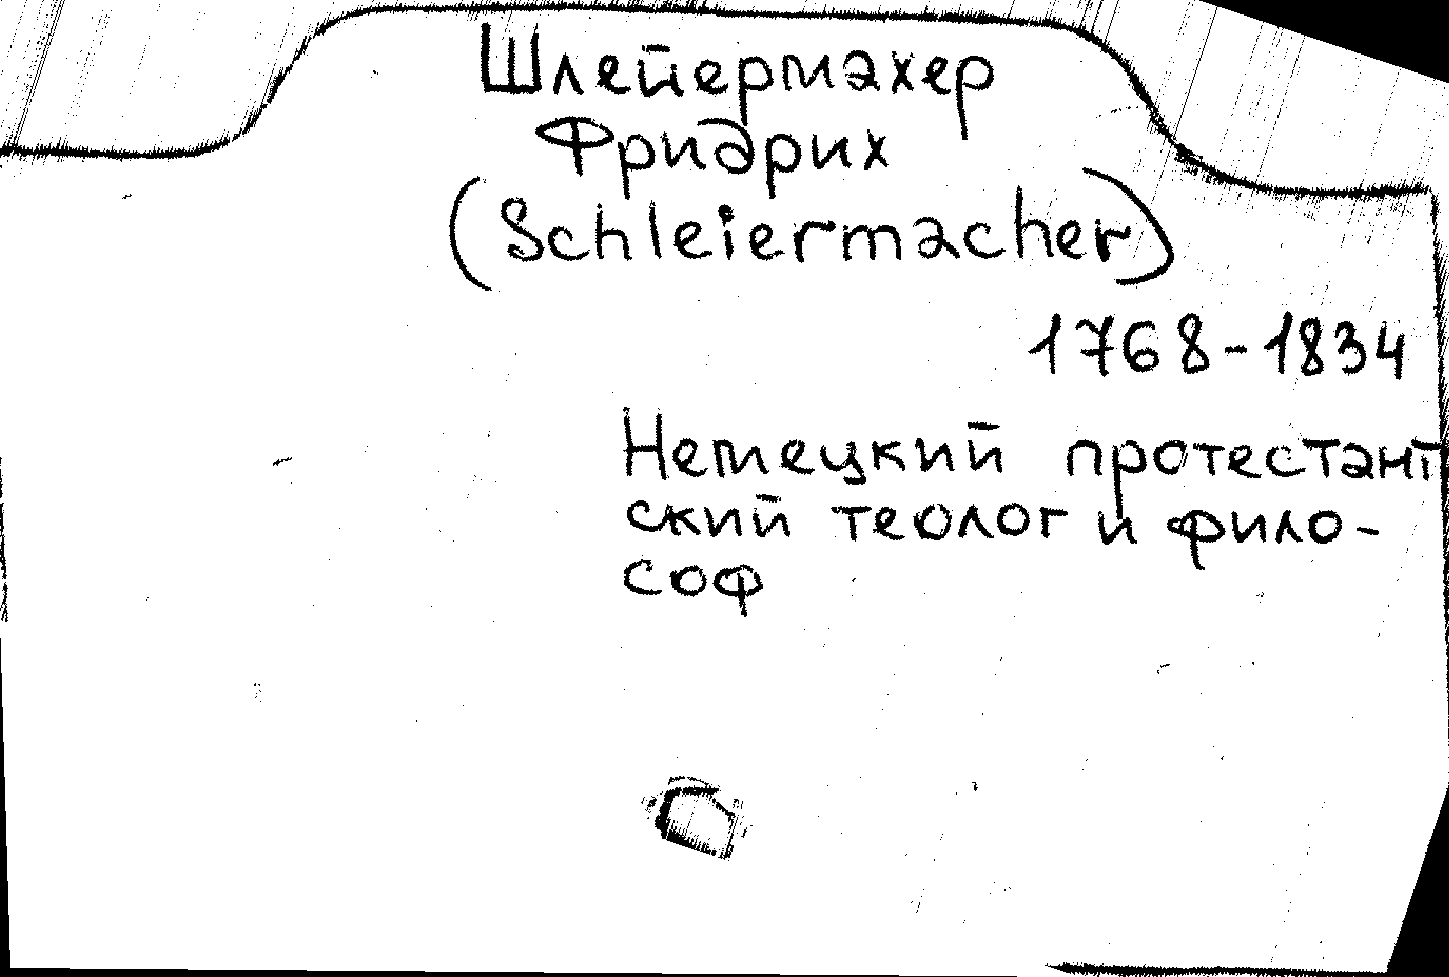 Шлейермахер
Фридрих
(Schleiermacher)
1768-1834
Немецкий протестант
ский теолог и фило-
соф